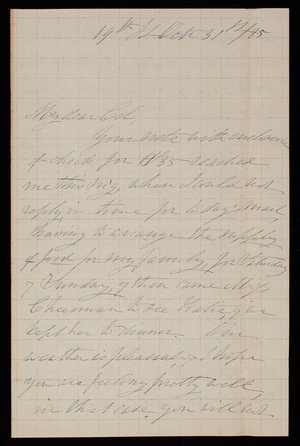 19th St Oct 31st/85
My dear Col,
Your note with enclosure
of check for $35 reached
me this m'g, when I could not
reply in time for to day's mail
having to arrange the supply
of food for my family for Saturday
& Sunday, & then came Miss
to see Katie, & we
kept her to dinner. Our
weather is pleasant, & I hope
you are feeling pretty well,
in that case you will not